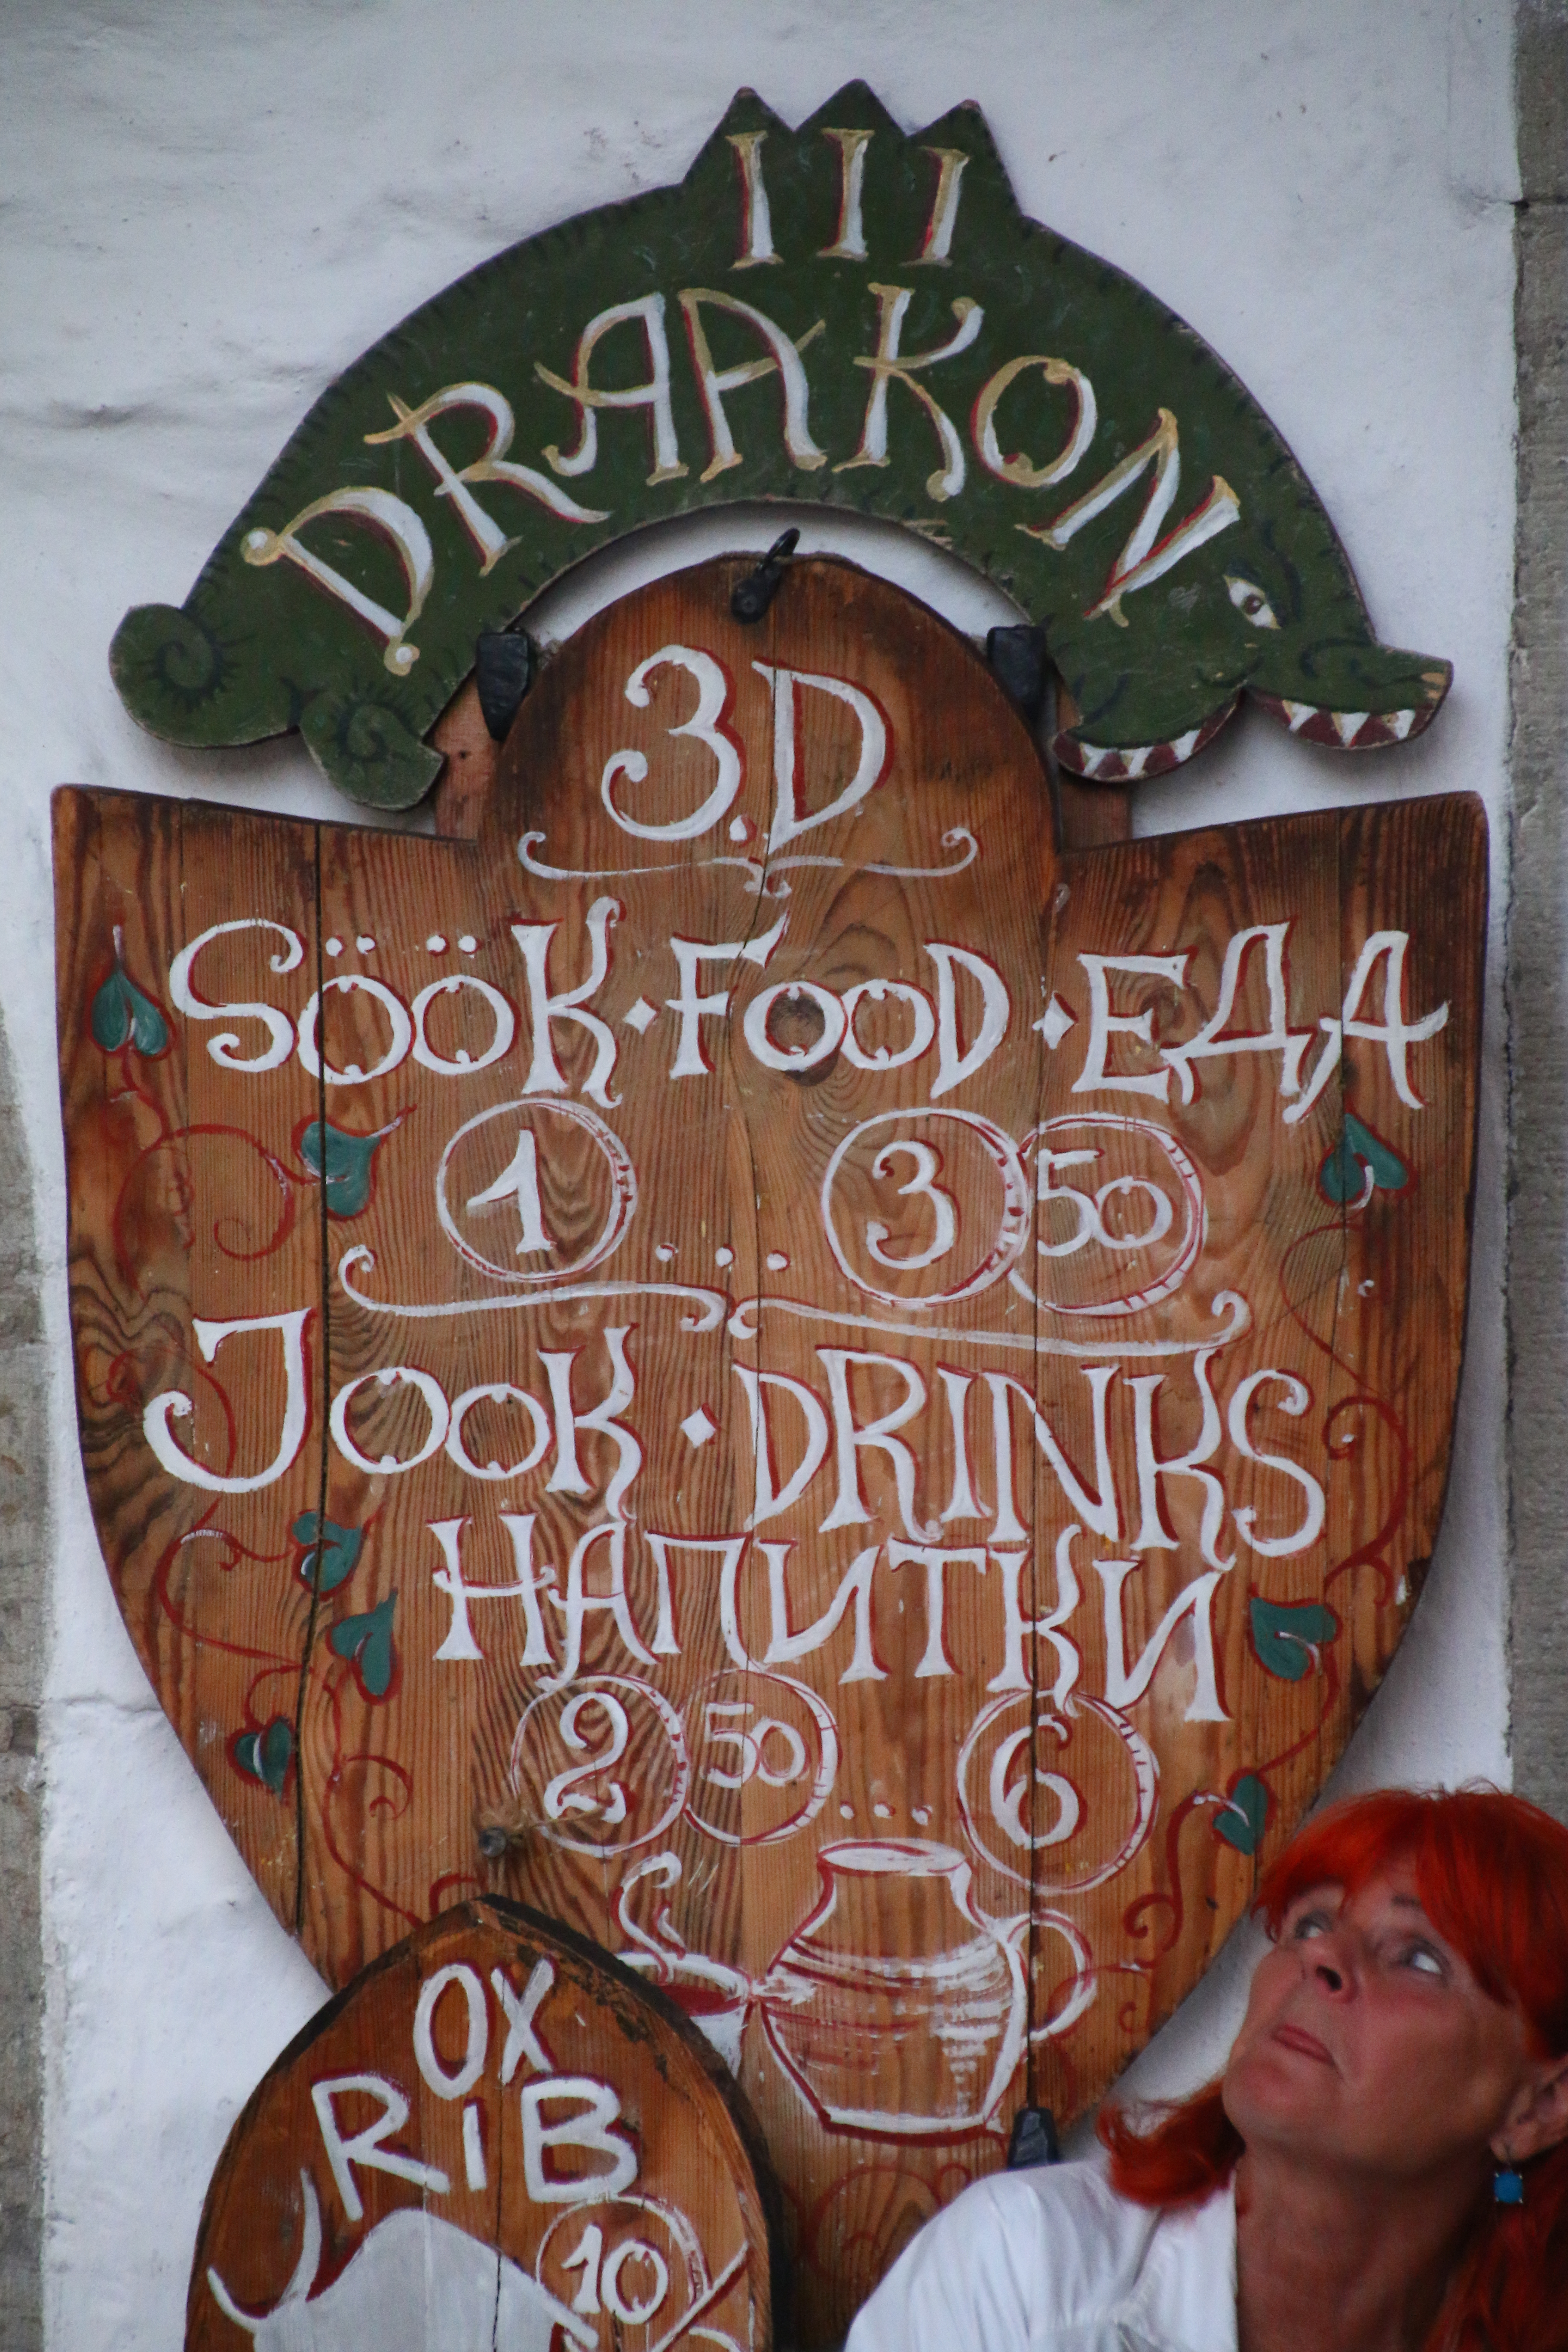 III
DRAAKON
3.D
SÖÖK · FOOD · ЕДА
1 ... 3 50
JOOK · DRINKS
НАПИТКИ
2 50 ... 6
OX
RiB
10